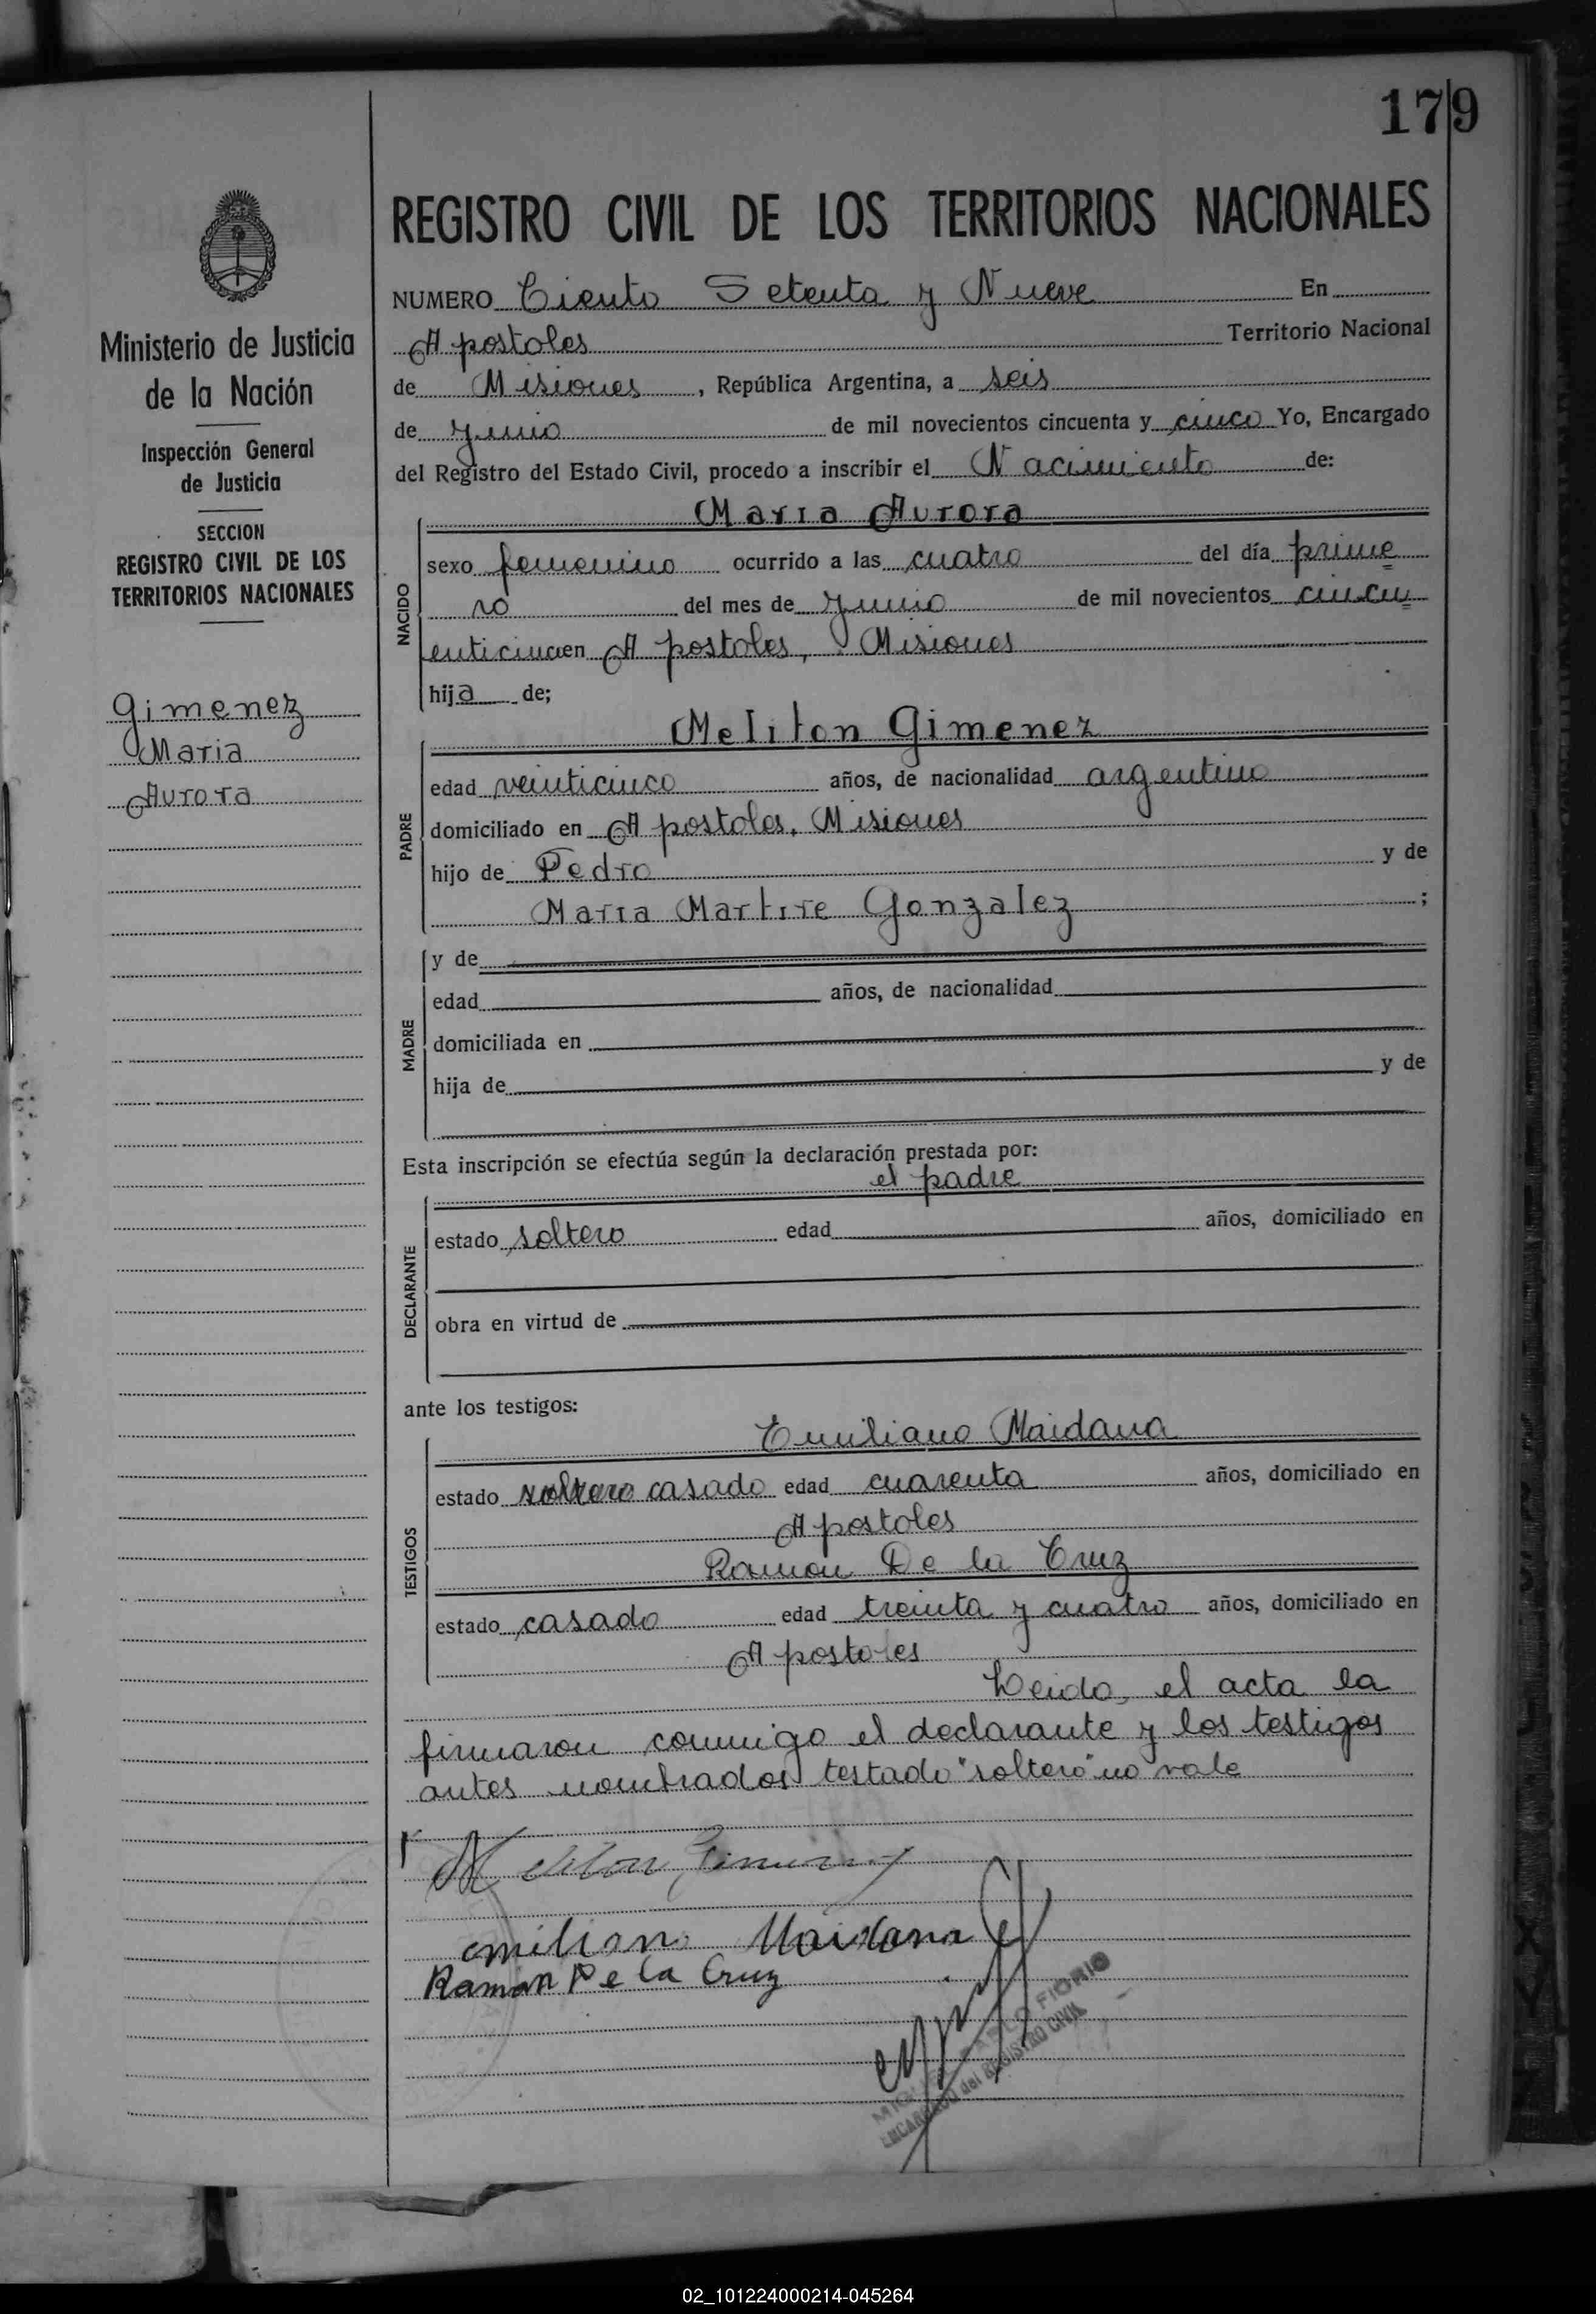 179
REGISTRO CIVIL DE LOS TERRITORIOS NACIONALES
Ministerio de Justicia
de la Nación
Inspección General
de Justicia
SECCION
REGISTRO CIVIL DE LOS
TERRITORIOS NACIONALES
Gimenez
Maria
Aurora
NUMERO Ciento Setenta y Nueve En
Apostoles Territorio Nacional
de Misiones, República Argentina, a seis
de Junio de mil novecientos cincuenta y cinco Yo, Encargado
del Registro del Estado Civil, procedo a inscribir el Nacimiento de:
NACIDO
Maria Aurora
sexo femenino ocurrido a las cuatro del día prime
ro del mes de Junio de mil novecientos cincu
enticinco en Apostoles, Misiones
hija de;
PADRE
Meliton Gimenez
edad veinticinco años, de nacionalidad argentino
domiciliado en Apostoles, Misiones
hijo de Pedro y de
Maria Martire Gonzalez ;
MADRE
y de
edad años, de nacionalidad
domiciliada en
hija de y de
Esta inscripción se efectúa según la declaración prestada por:
DECLARANTE
el padre
estado soltero edad años, domiciliado en
obra en virtud de
ante los testigos:
TESTIGOS
Emiliano Maidana
estado soltero casado edad cuarenta años, domiciliado en
Apostoles
Ramon De la Cruz
estado casado edad treinta y cuatro años, domiciliado en
Apostoles
Leida, el acta la
firmaron conmigo el declarante y los testigos
antes nombrados testado "soltero" no vale
Meliton Gimenez
emiliano Maidana
Ramon De la Cruz
FIORIO
ENCARGADO del REGISTRO CIVIL
02_101224000214-045264